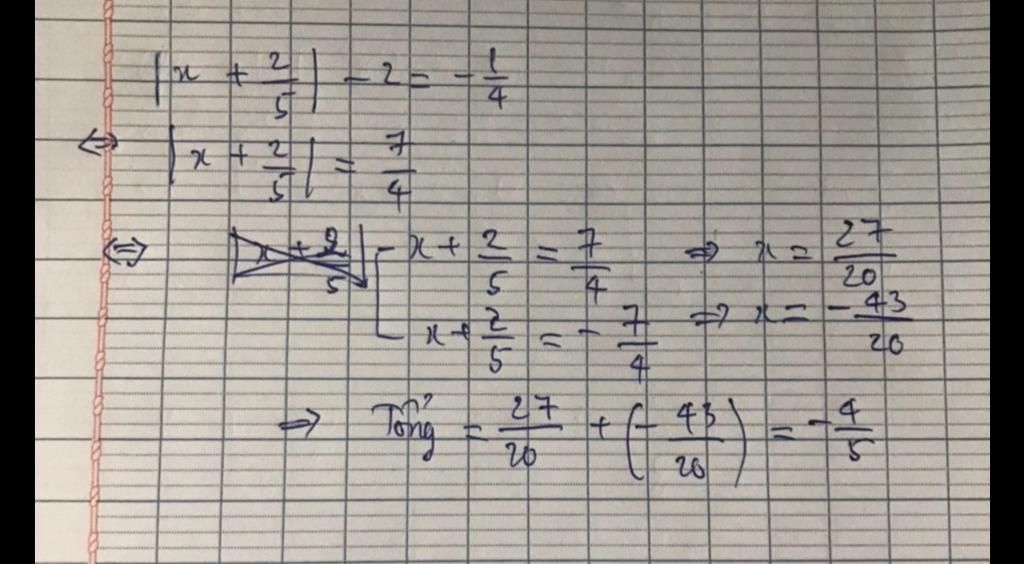 |x + 2/5| - 2 = - 1/4
⇔ |x + 2/5| = 7/4
⇔ x + 2/5 = 7/4 ⇒ x = 27/20
x + 2/5 = - 7/4 ⇒ x = - 43/20
⇒ Tổng = 27/20 + (- 43/20) = - 4/5